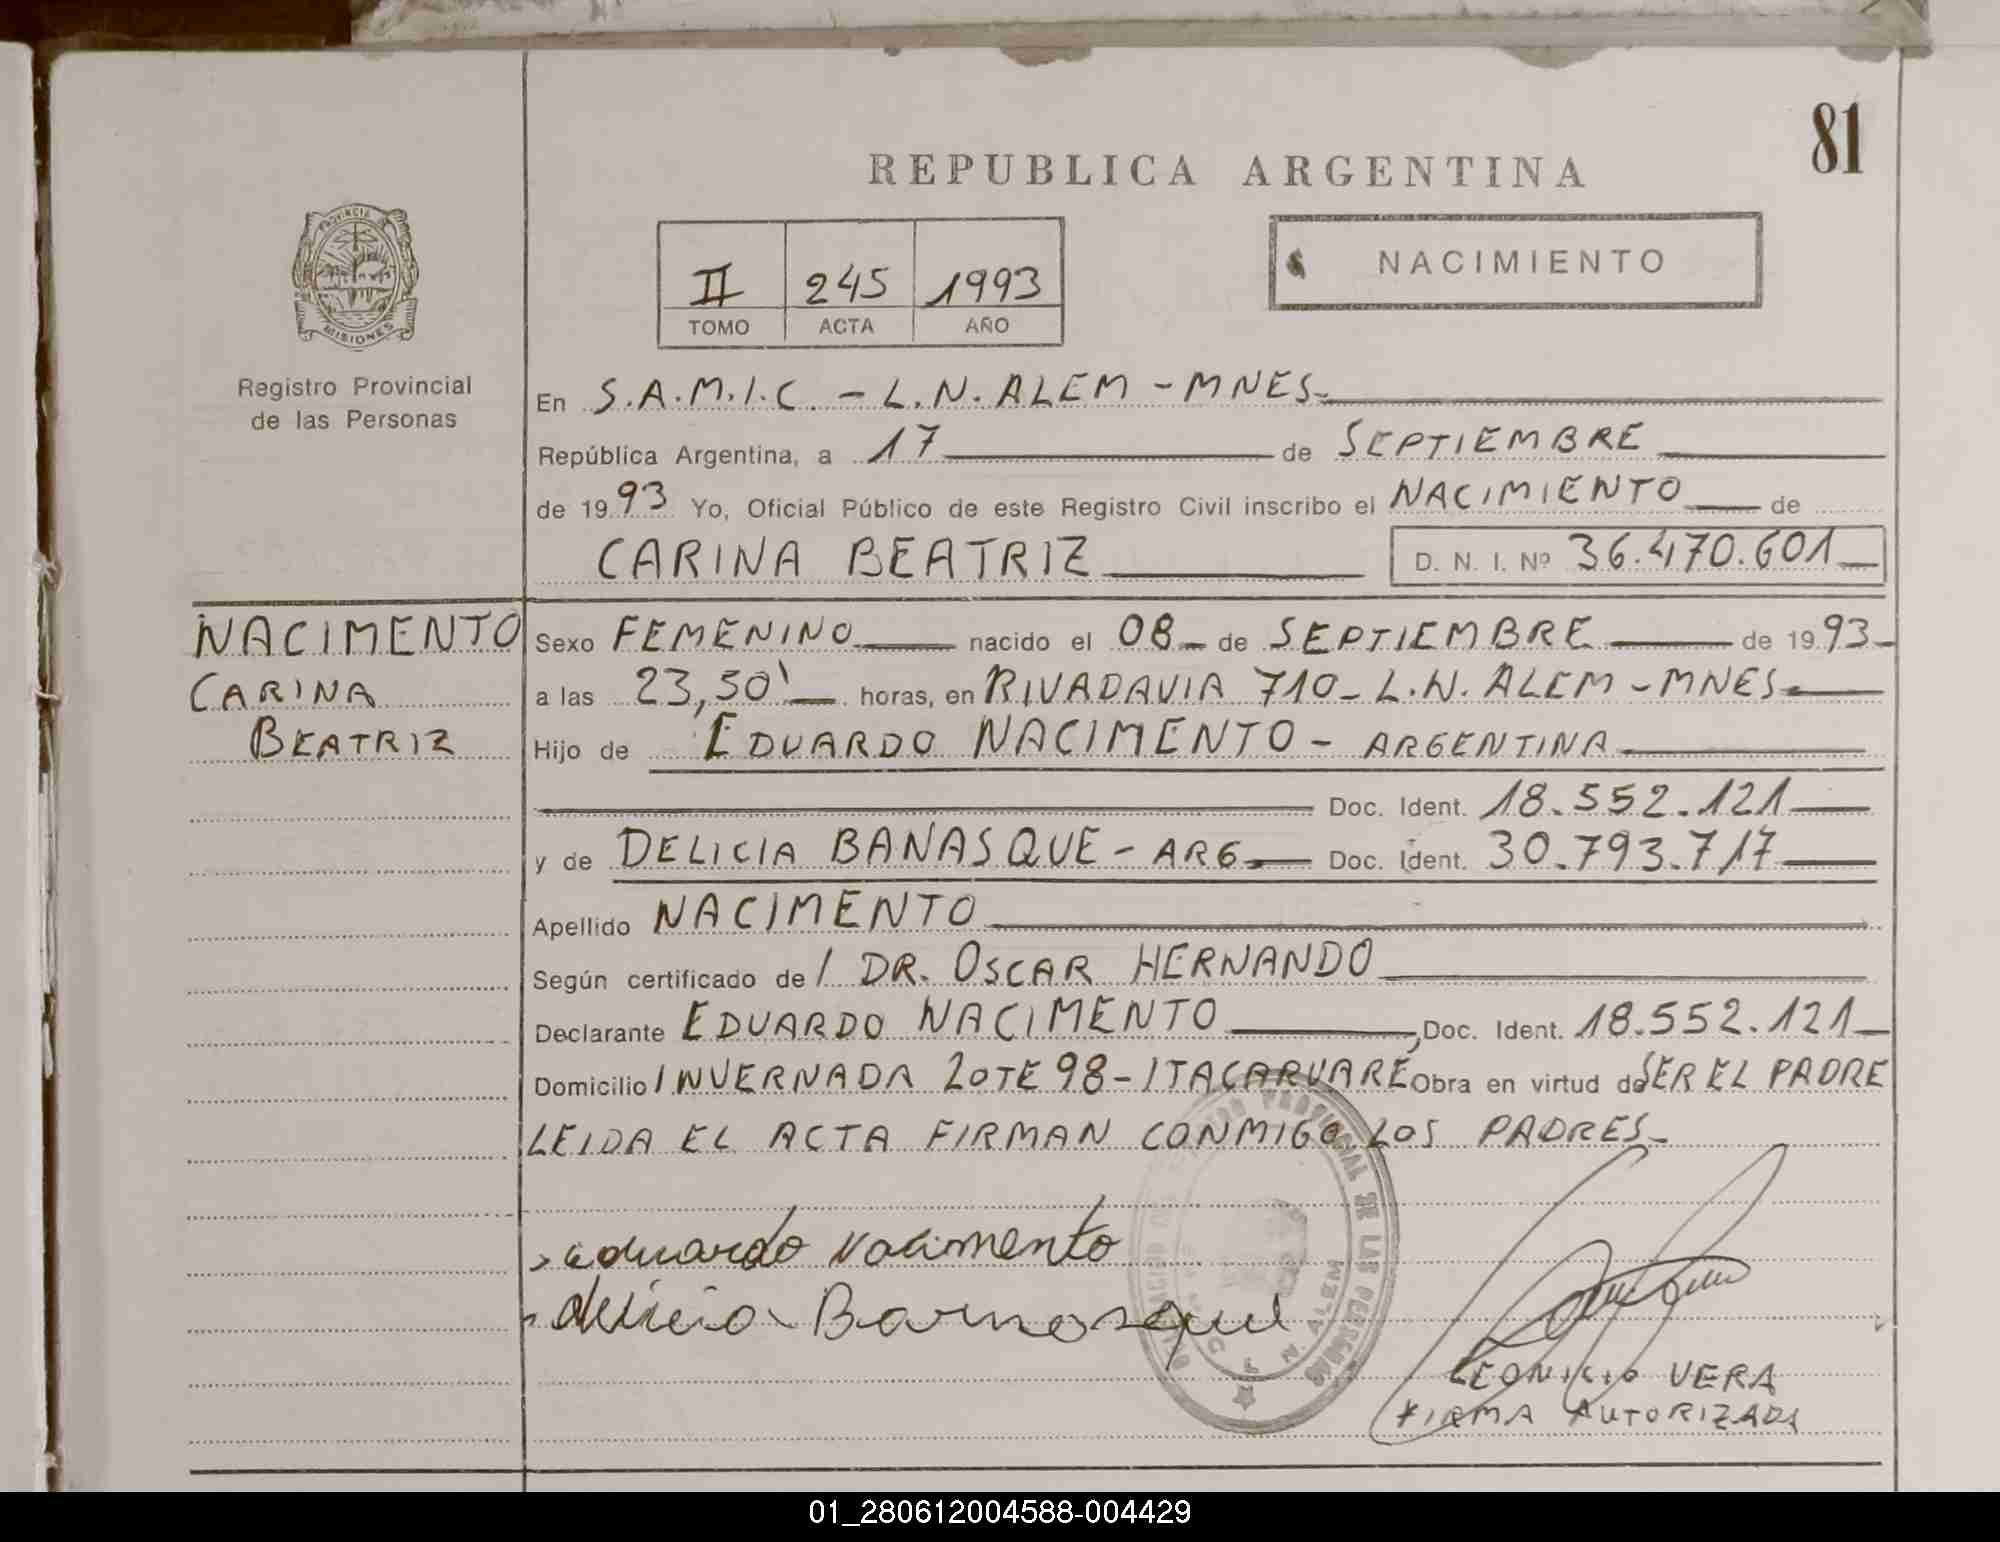 81
REPUBLICA ARGENTINA
PROVINCIA DE
MISIONES
Registro Provincial
de las Personas
II 245 1993
TOMO ACTA AÑO
NACIMIENTO
En S.A.M.I.C. - L.N. ALEM - MNES-
República Argentina, a 17 de SEPTIEMBRE
de 1993 Yo, Oficial Público de este Registro Civil inscribo el NACIMIENTO de
CARINA BEATRIZ D. N. I. Nº 36.470.601
NACIMENTO
CARINA
BEATRIZ
Sexo FEMENINO nacido el 08 de SEPTIEMBRE de 1993
a las 23,50' horas, en RIVADAVIA 710 - L.N. ALEM - MNES-
Hijo de EDUARDO NACIMENTO - ARGENTINA
Doc. Ident. 18.552.121
y de DELICIA BANASQUE - ARG. Doc. Ident. 30.793.717
Apellido NACIMENTO
Según certificado de / DR. OSCAR HERNANDO
Declarante EDUARDO NACIMENTO, Doc. Ident. 18.552.121
Domicilio INVERNADA LOTE 98 - ITACARUARE Obra en virtud de SER EL PADRE
LEIDA EL ACTA FIRMAN CONMIGO LOS PADRES-
eduardo nacimento
delicia Barnasque
PROVINCIAL DE LAS PERSONAS
N. ALEM
LEONICIO VERA
FIRMA AUTORIZADA
01_280612004588-004429